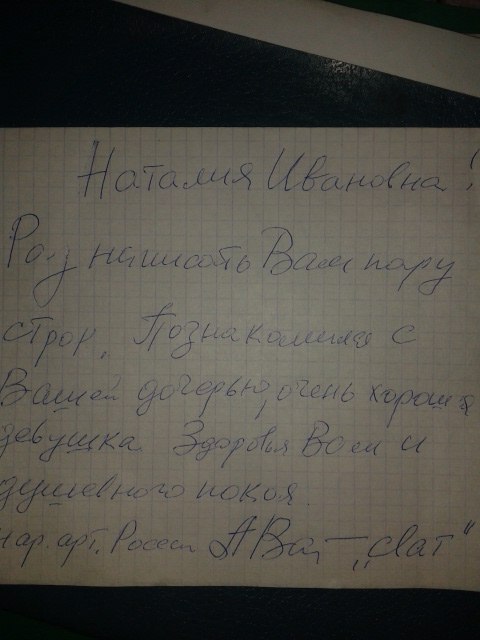 Наталия Ивановна!
написать Вам пару
строк. Познакомился с
Вашей дочерью, очень хорошая
девушка. Здоровья Вам и
душевного покоя.
нар. арт. России „Сват“